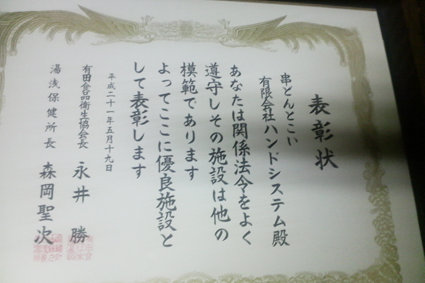 表彰状
串どんとこい
有限会社ハンドシステム殿
あなたは関係法令をよく
遵守しその施設は他の
模範であります
よってここに優良施設と
して表彰します
平成二十一年五月十九日
有田食品衛生協会長 永井 勝
湯浅保健所長 森岡聖次